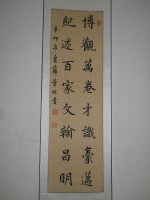 博觀萬卷才識豪邁
紀述百家文翰昌明